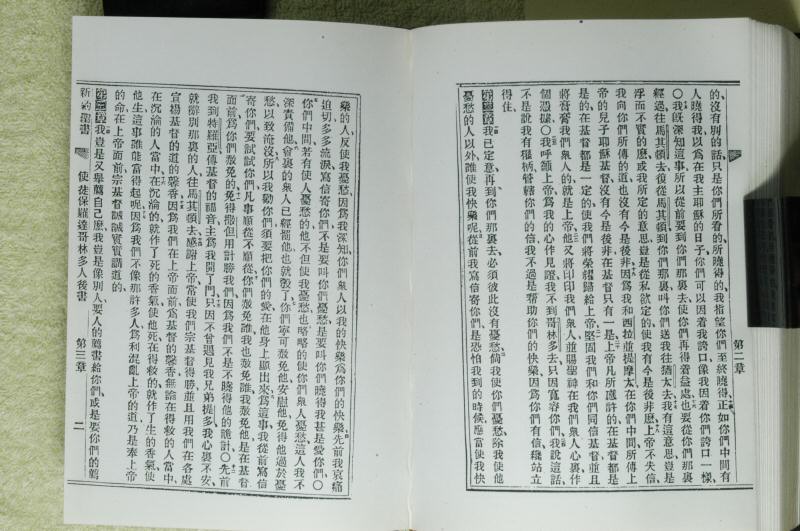 第二章
的、沒有別的話只是你們所看的所曉得的、我指望你們至終曉得、正如你們中間有
人曉得我以爲在我主耶穌的日子、你們可以因着我誇口、像我因着你們誇口一樣、
○我旣深知這事、所以從前要到你們那裏去、使你們再得着益處、也要從你們那裏
經過往馬其頓去、後從馬其頓到你們那裏、叫你們送我往猶太去、我有這意思豈是
浮而不實的麽、或我所定的意思、豈是從私欲定的、使我有今是後非麽、上帝不失信
我向你們所傳的道也沒有今是後非、因爲我和西拉並提摩太、在你們中間所傳上
帝的兒子耶穌基督沒有今是後非、在基督只有一是、上帝凡所應許的、在基督都是
是的、在基督都是一定的、使我們將榮耀歸給上帝、堅固我們和你們同信基督、並且
將膏膏我們衆人的就是上帝、他又將印印我們衆人、並賜聖神在我們衆人心裏作
個憑據○我呼籲上帝爲我的心作見證、我不到哥林多去、只因寬容你們、我說這話
不是說我有權柄、轄管你們的信、我不過是幫助你們的快樂、因爲你們有信、纔站立
得住、
第二章我已定意再到你們那裏去、必須彼此沒有憂愁、倘我使你們憂愁、除我使他
憂愁的人以外、誰使我快樂呢、從前我寫信寄你們、是恐怕我到的時候、應當使我快
樂的人、反使我憂愁、因爲我深知你們衆人以我的快樂、爲你們的快樂、先前我哀痛
迫切、多多流淚、寫信寄你們、不是要叫你們憂愁、是要叫你們曉得我甚是愛你們、○
你們中間、若有使人憂愁的、他不但使我憂愁、也略略的使你們衆人憂愁、這人我不
深責備他、會裏的衆人已經罰他、也就彀了、你們寧可赦免他、安慰他、免得他過於憂
愁、以致沉沒、所以我勸你們、須要把你們的愛、在他身上顯出來、爲這事、我從前寫信
寄你們、要試試你們、凡事順從不順從、你們赦免誰、我也赦免誰、我赦免他、是在基督
面前爲你們赦免的、免得撒但用計勝我們、因爲我們不是不曉得他的詭計○先前
我到特羅亞傳基督的福音、主爲我開了門、只因不曾遇見我兄弟提多、我心裏不安、
就辭別那裏的人、往馬其頓去、感謝上帝、常使我們宗基督得勝、並且用我們在各處
宣揚基督的道的馨香、因爲我們在上帝面前、爲基督的馨香、無論在得救的人當中、
在沉淪的人當中、在沉淪的、就作了死的香氣、使他死、在得救的、就作了生的香氣、使
他生、這事誰能當得起呢、因爲我們不像那許多人、爲利混亂上帝的道、乃是奉上帝
的命、在上帝面前、宗基督誠誠實實講道的、
第三章我豈是又舉薦自己麽、我豈是像別人、要人的薦書給你們、或是要你們的薦
新約聖書 使徒保羅達哥林多人後書 第三章 二